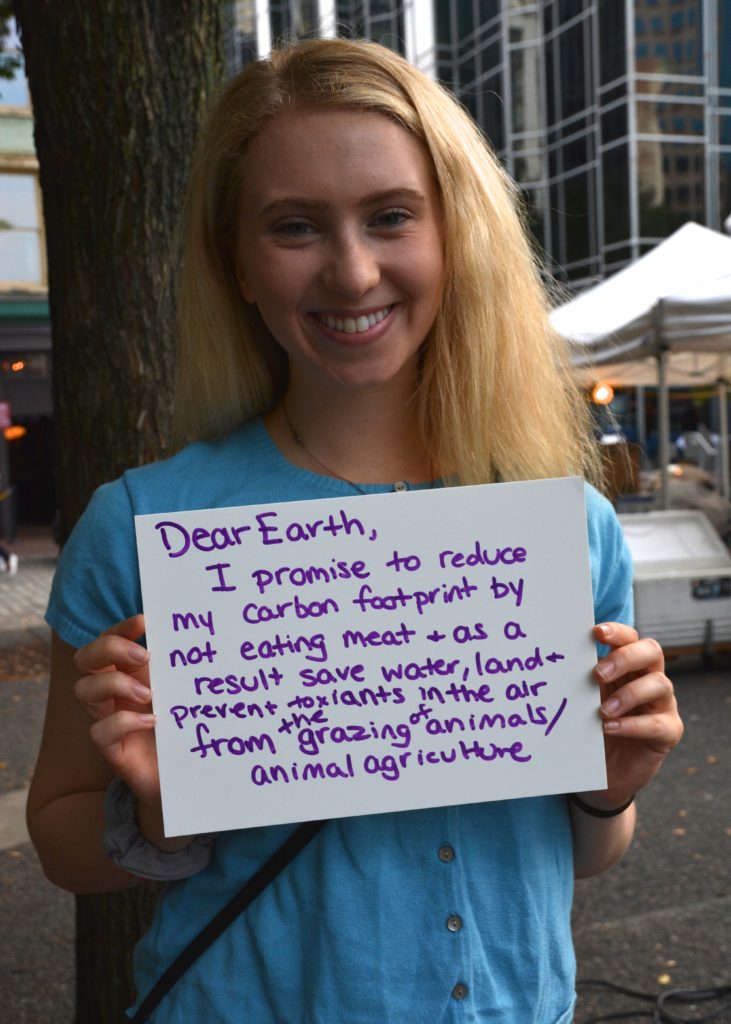 Dear Earth,
I promise to reduce
my carbon footprint by
not eating meat + as a
result save water, land +
prevent toxiants in the air
from the grazing of animals/
animal agriculture